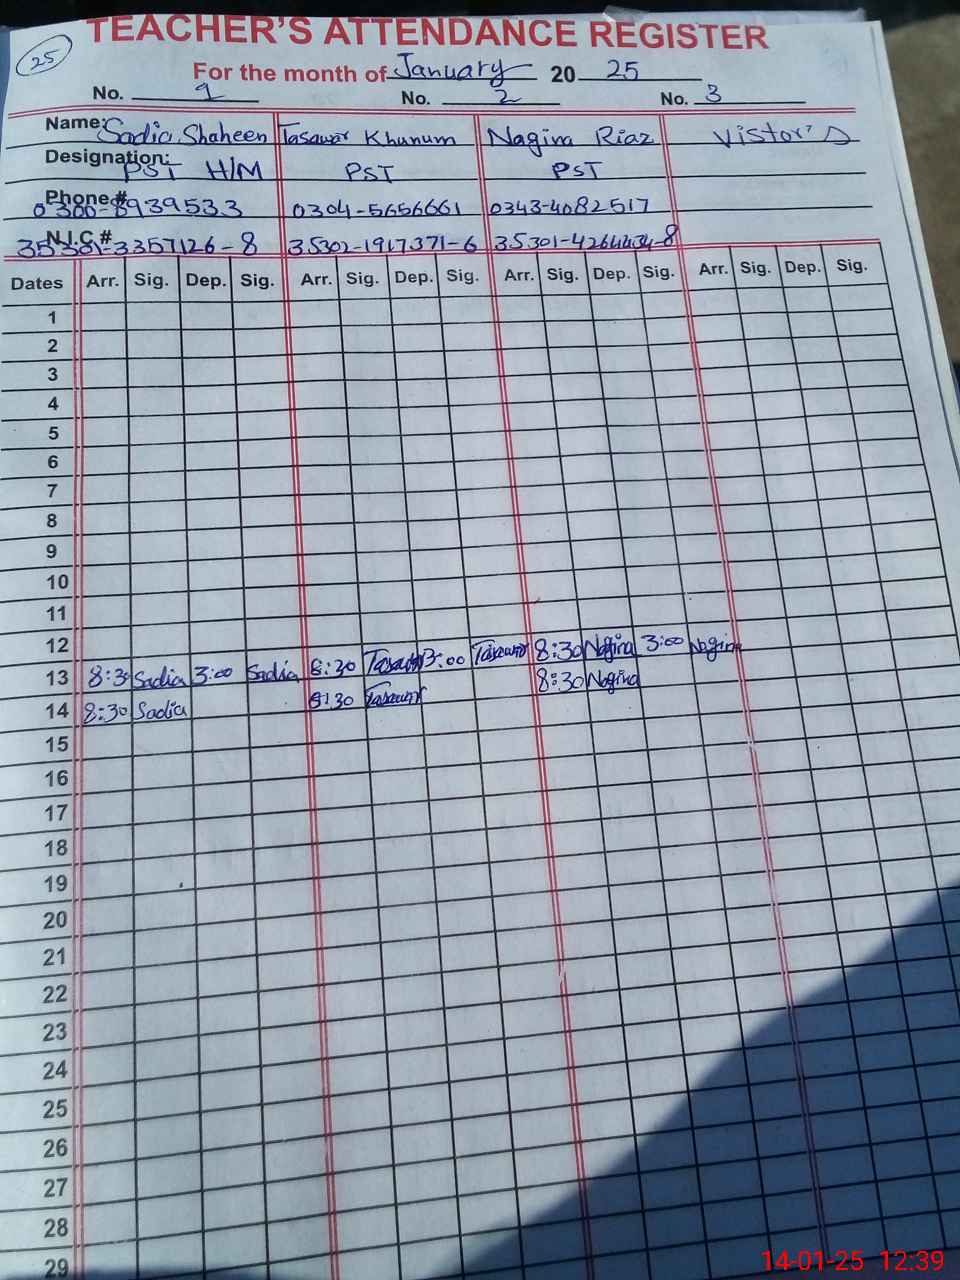 25
TEACHER'S ATTENDANCE REGISTER
For the month of January 2025
No. 1 No. 2 No. 3
Name: Sadia Shaheen Tasawar Khunum Nagina Riaz Vistor's
Designation: PST H/M PST PST
Phone # 0300-8939533 0304-5656661 0343-4082517
N.I.C # 35301-3357126-8 35302-1917371-6 35301-4264434-8
Dates Arr. Sig. Dep. Sig. Arr. Sig. Dep. Sig. Arr. Sig. Dep. Sig. Arr. Sig. Dep. Sig.
1
2
3
4
5
6
7
8
9
10
11
12
13 8:30 Sadia 3:00 Sadia 8:30 Tasawar 3:00 Tasawar 8:30 Nagina 3:00 Nagina
14 8:30 Sadia 8:30 Tasawar 8:30 Nagina
15
16
17
18
19
20
21
22
23
24
25
26
27
28
29
14-01-25 12:39